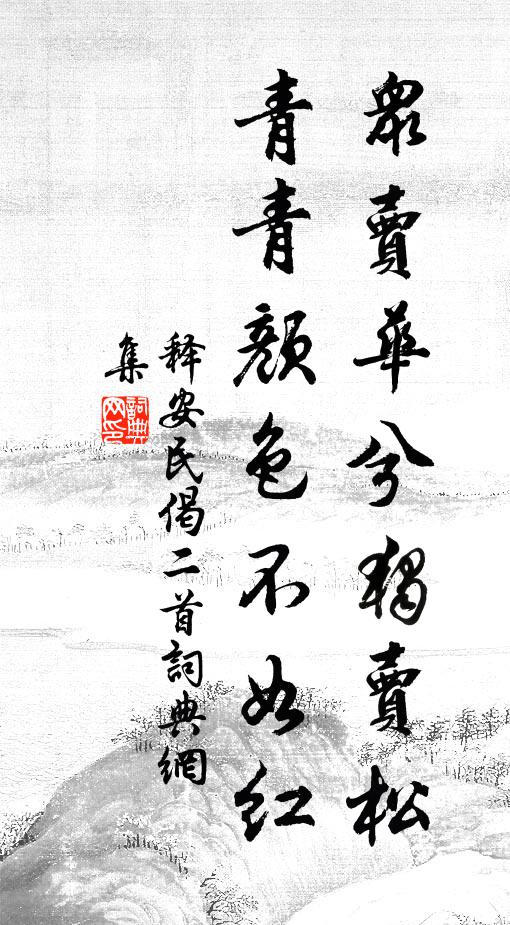 眾賣華兮獨賣松
青青顏色不如紅
释安民偈二首詞典網
集
詞典網印